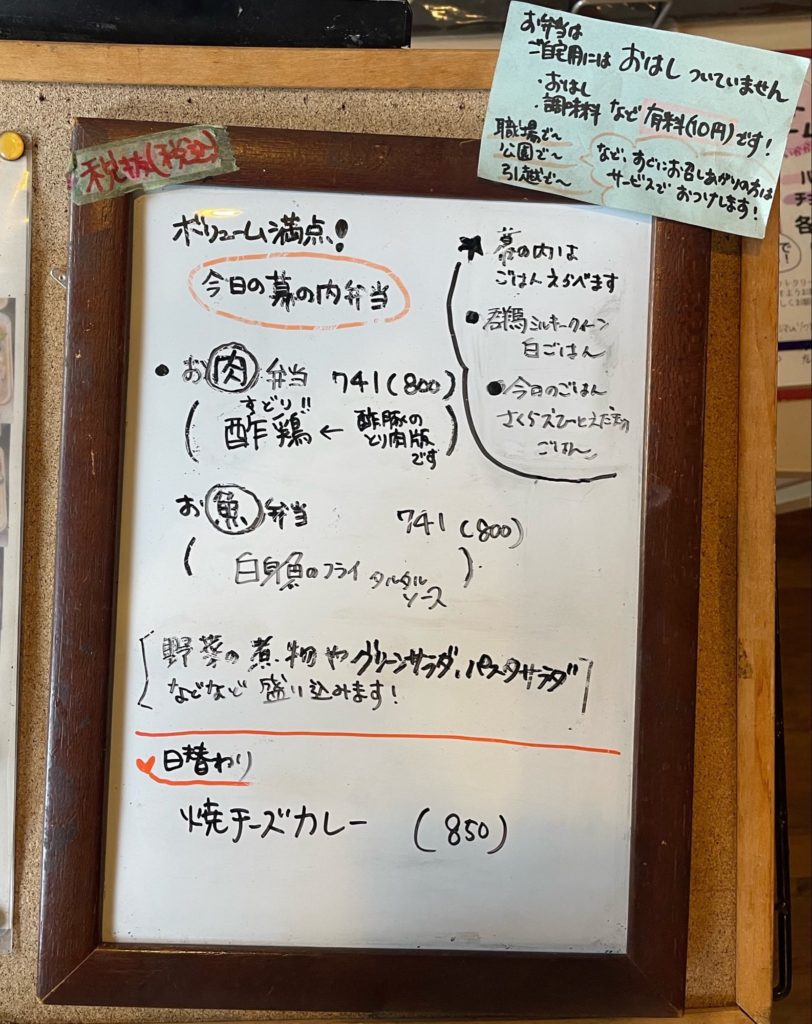 お弁当は
ご自宅用には おはし ついていません
・おはし
・調味料 など 有料(10円)です!
職場で〜
公園で〜
引越で〜
など、すぐにお召しあがりの方は
サービスで おつけします!
税抜(税込)
ボリューム満点!
今日の幕の内弁当
● お肉弁当 741(800)
すどり!!
(酢鶏 ← 酢豚の
とり肉版
です)
お魚弁当 741(800)
(白身魚のフライ タルタル
ソース)
★ 幕の内は
ごはんえらべます
● 群馬ミルキークイーン
白ごはん
● 今日のごはん
さくらえびとえだ豆の
ごはん
[野菜の煮物やグリーンサラダ、パスタサラダ
などなど 盛り込みます!]
♥日替わり
焼チーズカレー (850)